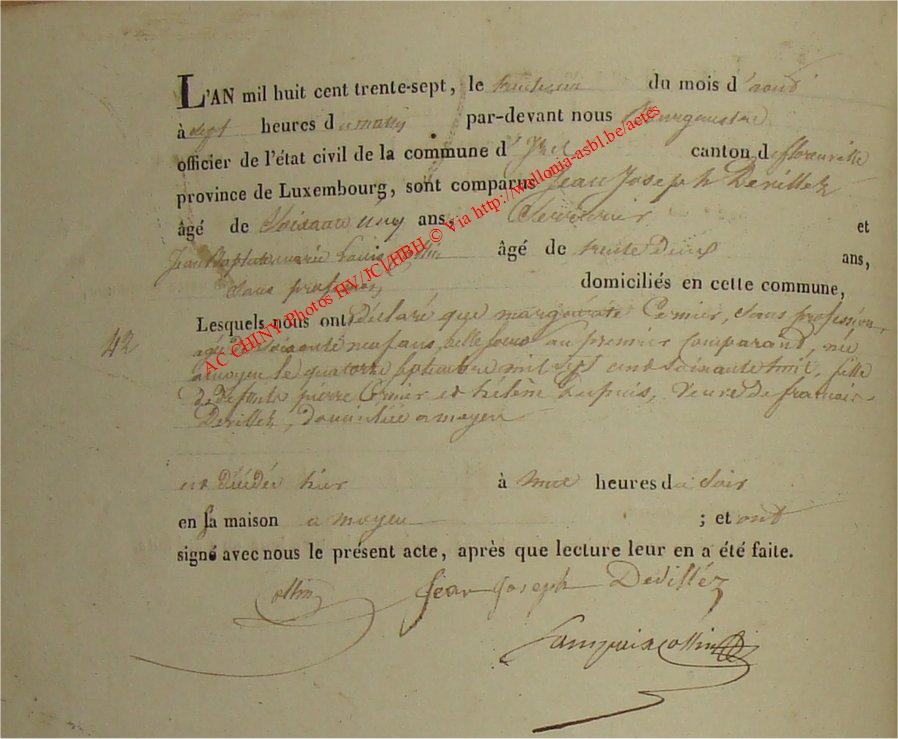 L'AN mil huit cent trente-sept, le trente un du mois d'aout
à sept heures du matin par-devant nous Bourgmestre
officier de l'état civil de la commune d'Izel canton de florenville
province de Luxembourg, sont comparus Jean Joseph Devillez
âgé de Soixante un ans, Serrurier et
Jean Baptiste marie Louis Collin âgé de trente Deux ans,
Sans profession domiciliés en cette commune,
Lesquels nous ont déclaré que margueritte Cornier, Sans profession,
42
agée de Soixante neuf ans, belle Soeur au premier Comparant, née
a moyen le quatorze Septembre mil Sept cent Soixante huit, fille
de Defunts pierre Cornier et hélène Dupuis, Veuve de francois
Devillez, domiciliée a moyen
est décédée hier à heures du Soir
en sa maison a moyen ; et ont
signé avec nous le présent acte, après que lecture leur en a été faite.
Collin Jean Joseph Devilléz
Collin
AC CHINY Photos HV/JC/HBH © Via http://wallonia-asbl.be/actes